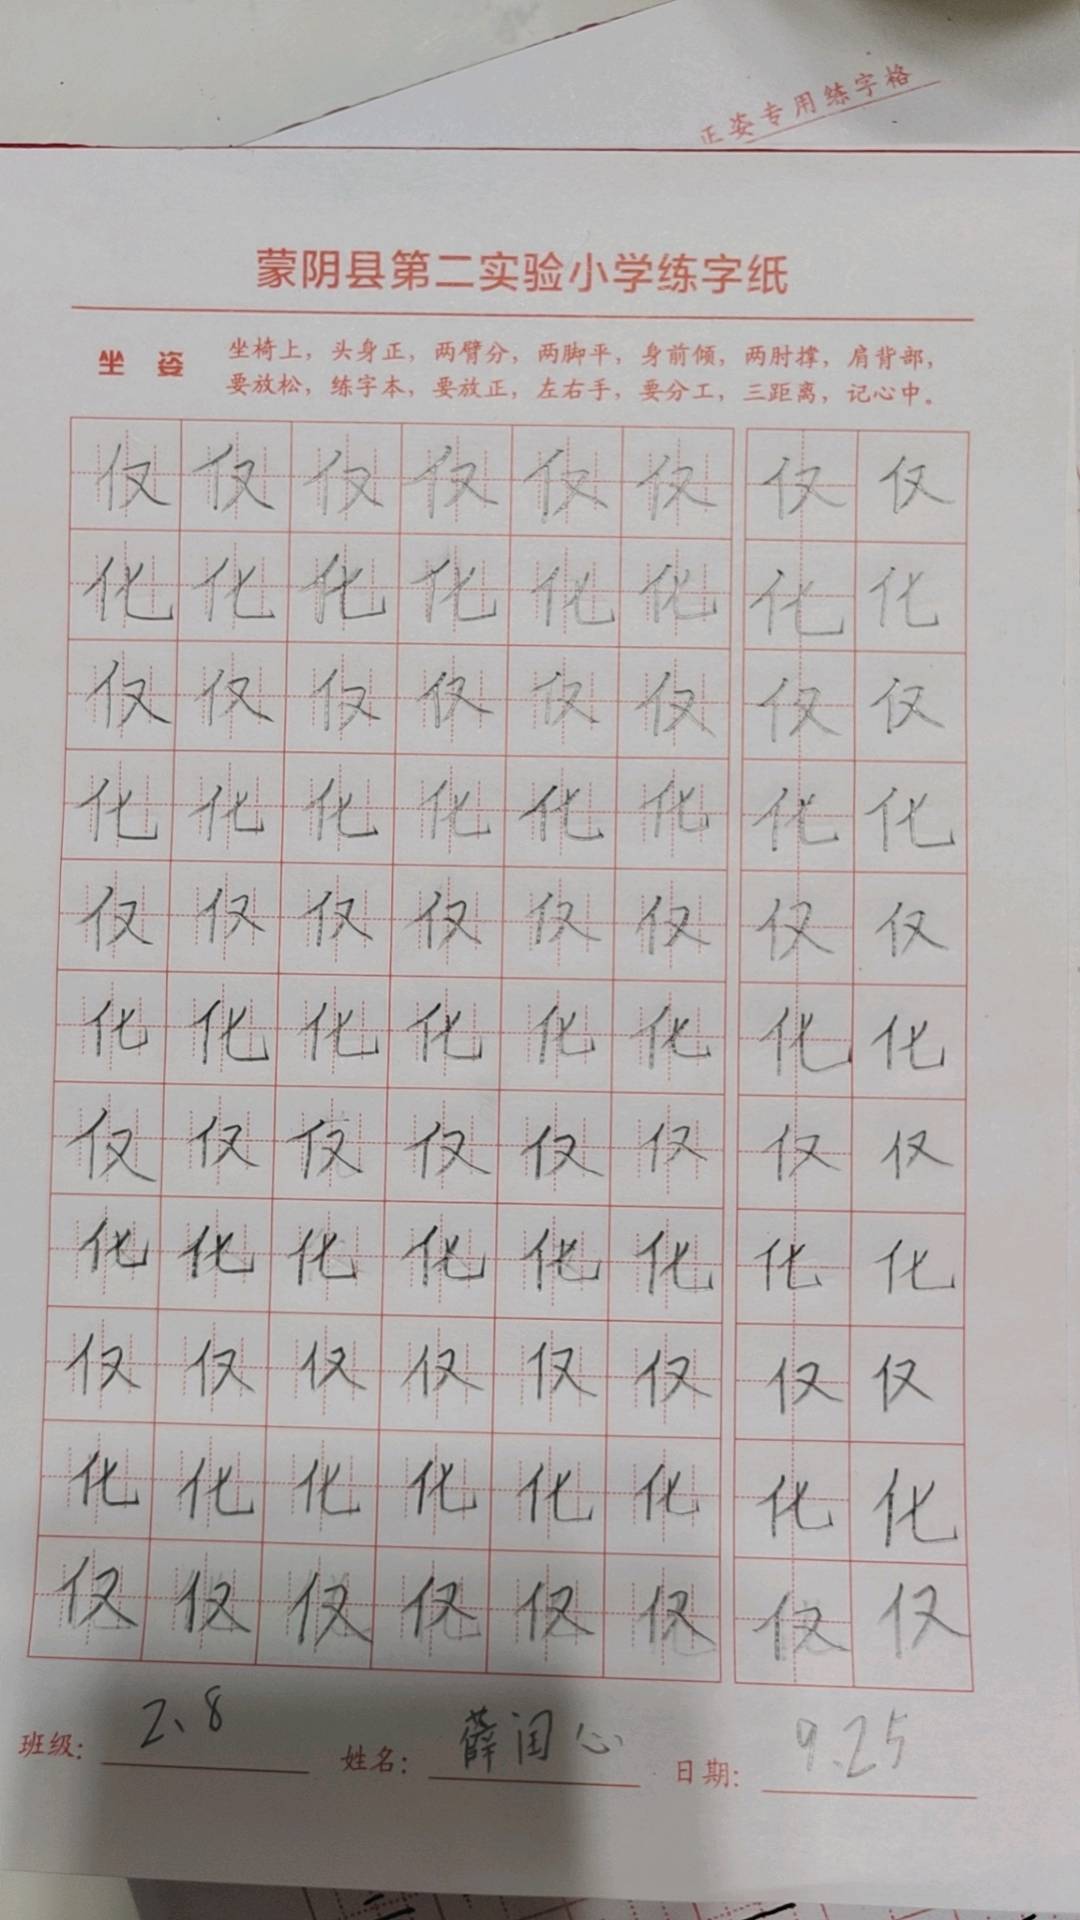 正姿专用练字格
蒙阴县第二实验小学练字纸
坐 姿 坐椅上，头身正，两臂分，两脚平，身前倾，两肘撑，肩背部，
要放松，练字本，要放正，左右手，要分工，三距离，记心中。
仅 仅 仅 仅 仅 仅 仅 仅
化 化 化 化 化 化 化 化
仅 仅 仅 仅 仅 仅 仅 仅
化 化 化 化 化 化 化 化
仅 仅 仅 仅 仅 仅 仅 仅
化 化 化 化 化 化 化 化
仅 仅 仅 仅 仅 仅 仅 仅
化 化 化 化 化 化 化 化
仅 仅 仅 仅 仅 仅 仅 仅
化 化 化 化 化 化 化 化
仅 仅 仅 仅 仅 仅 仅 仅
班级: 2、8 姓名: 薛闰心 日期: 9.25